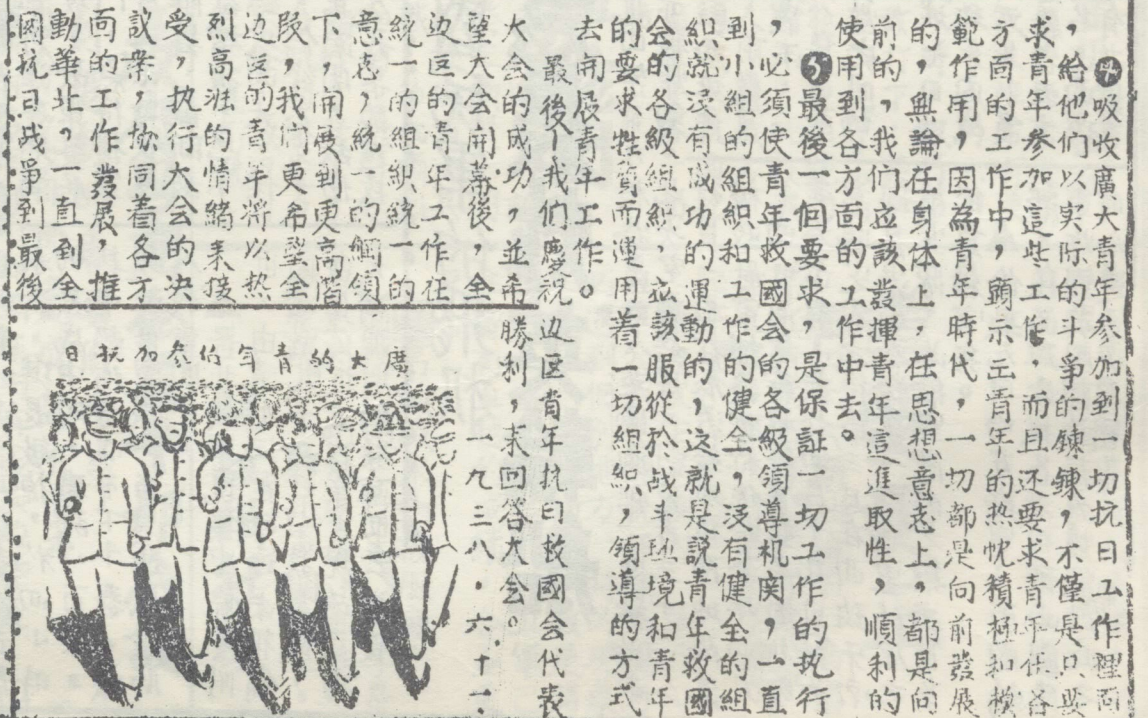 4吸收廣大青年参加到一切抗日工作裡面
，給他们以实际的斗爭的鍊鍊，不僅是只要
求青年参加這些工作．而且还要求青年在各
方面的工作中，顕示出青年的热忱積極和模
範作用，因為青年時代，一切都是向前發展
的，無論在身体上，在思想意志上，都是向
前的，我们应該發揮青年這進取性，順利的
使用到各方面的工作中去。
5最後一個要求，是保証一切工作的执行
，必須使青年救國会的各級領導机関，一直
到小組的組织和工作的健全，没有健全的組
組织就没有成功的運動的，这就是説青年救國
会的各级組织，应該服從於战斗环境和青年
的要求性質而運用着一切組织，領導的方式
去開展青年工作。
最後－我们慶祝边区青年抗日救國会代表
大会的成功，並希
望大会開幕後，全
边区的青年工作在
統一的組织統一的
意志，統一的綱領
下，開展到更高階
段，我们更希望全
边区的青年將以热
烈高涨的情緒来接
受，执行大会的决
議案，協同着各方
面的工作發展，推
動華北，一直到全
國抗日战爭到最後
勝利，来回答大会。
一九三八．六．十一．
廣大的青年们参加抗日